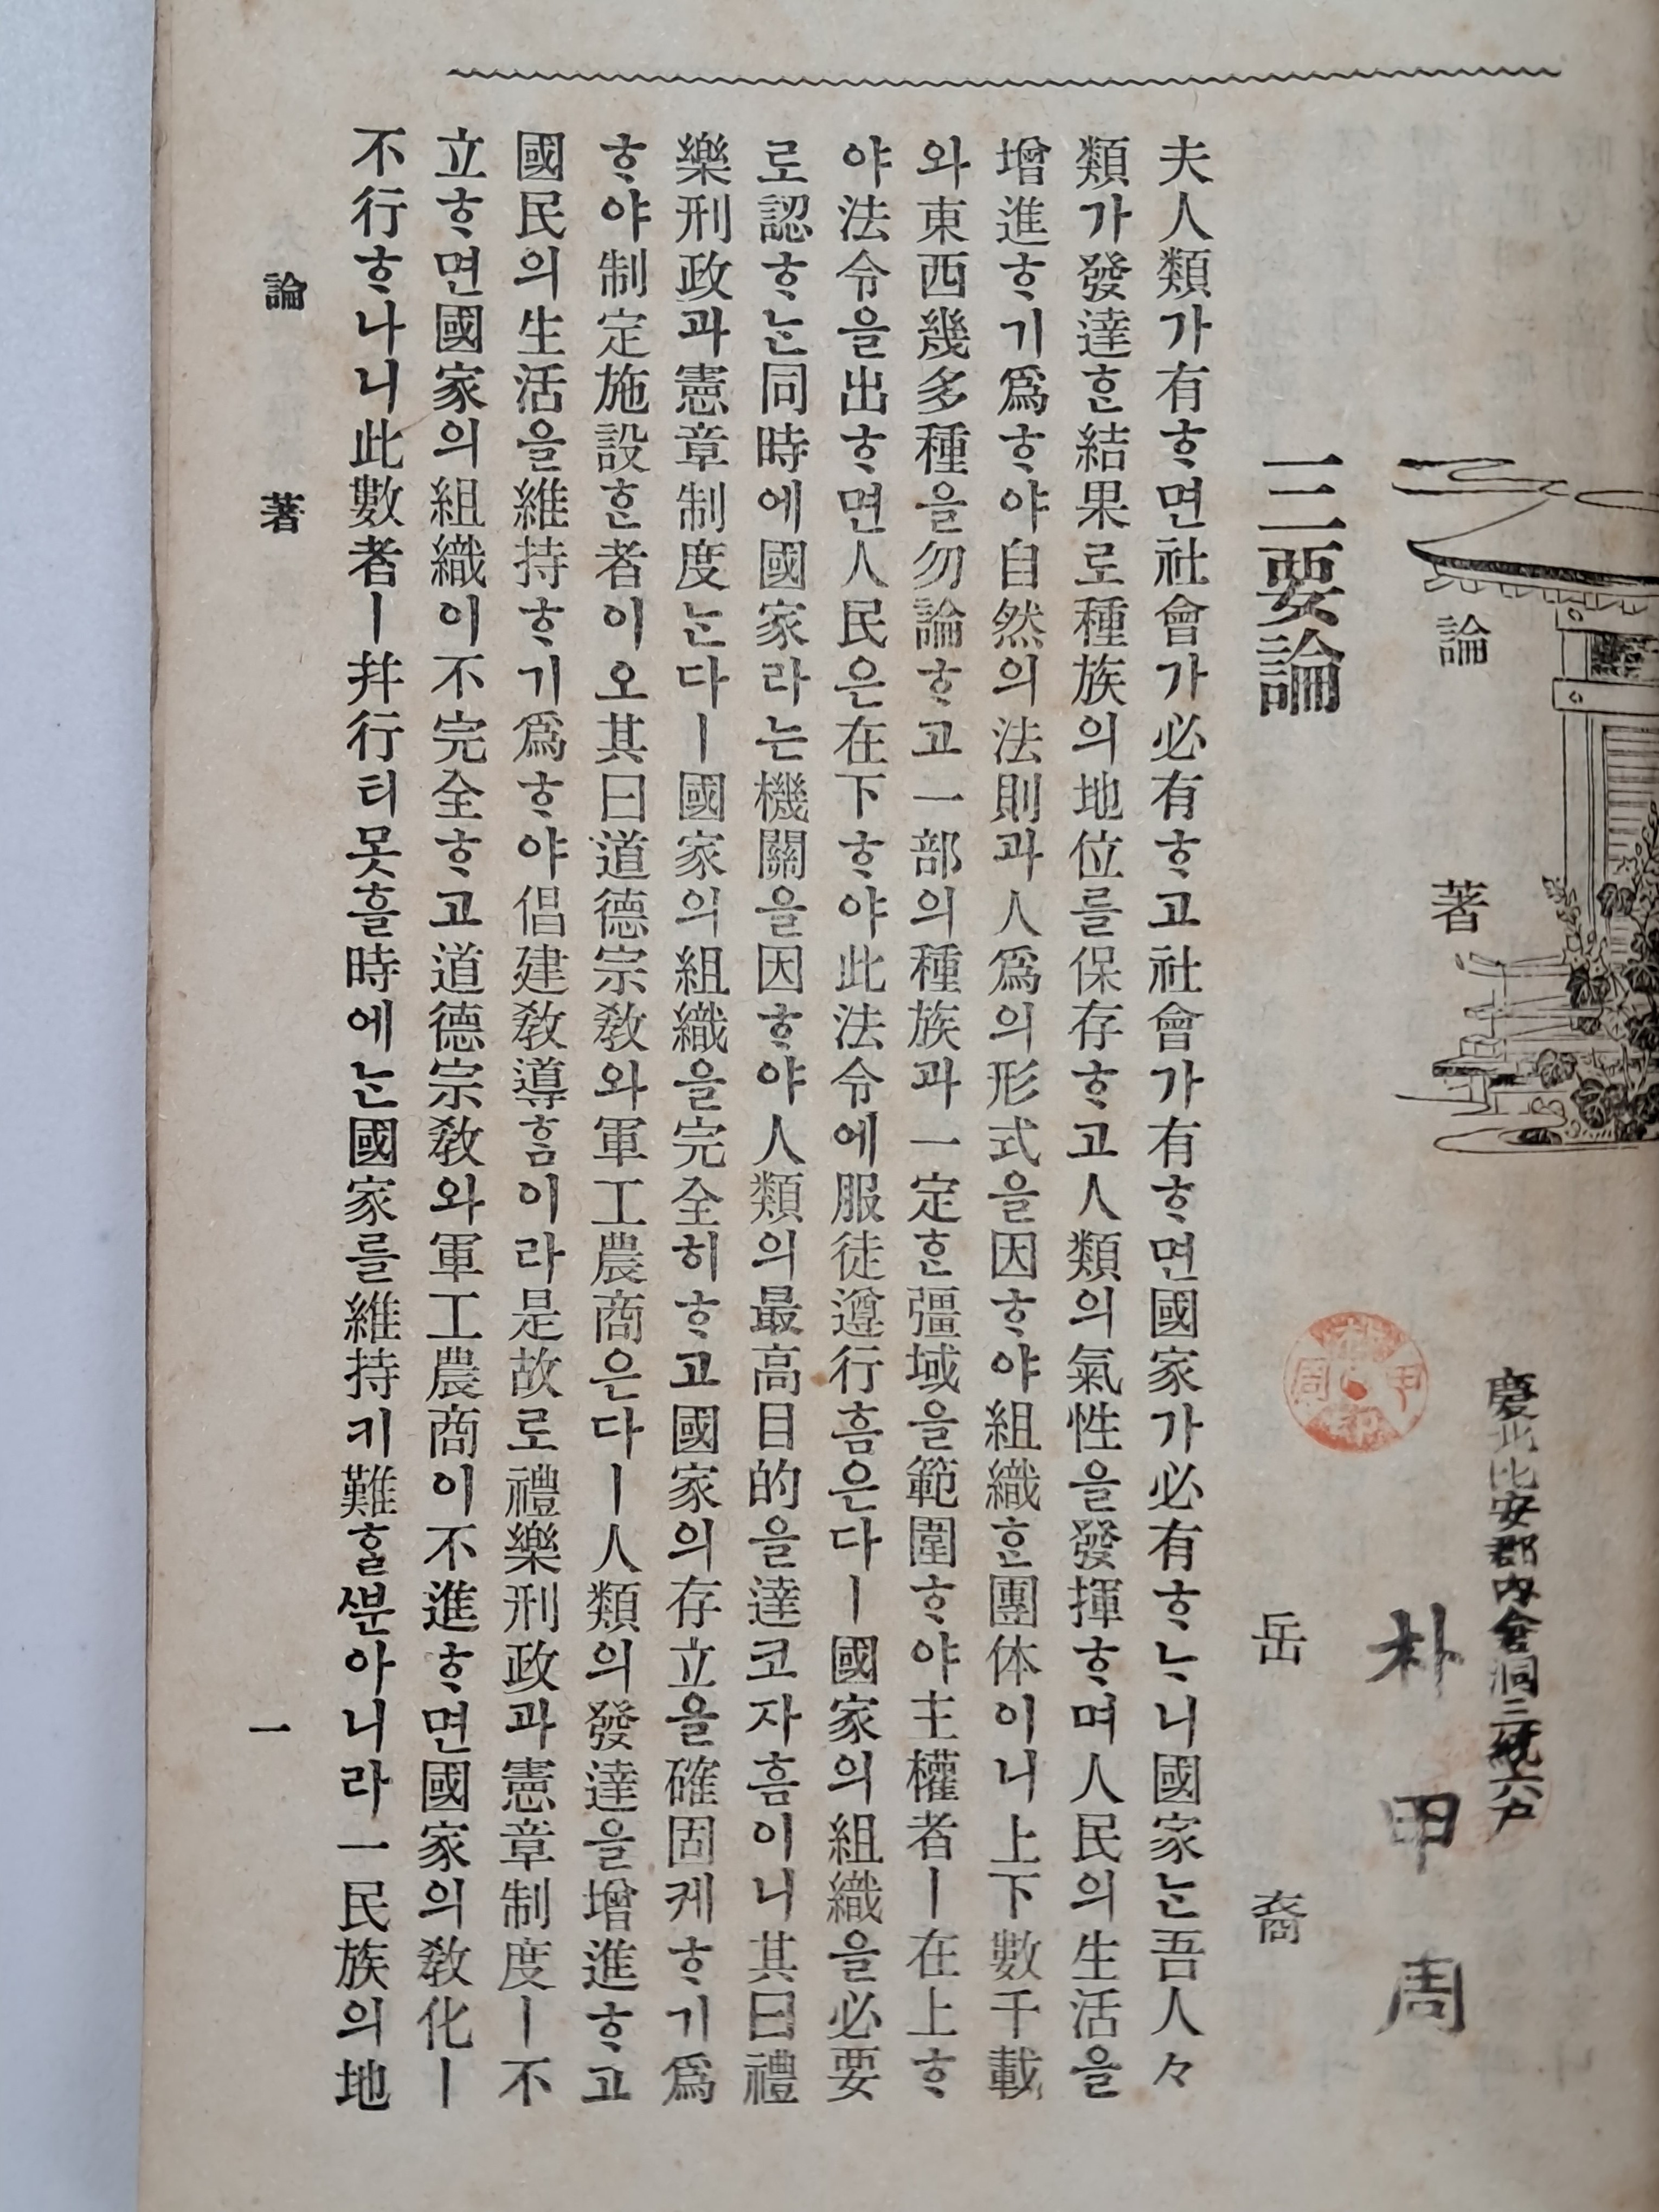 論 著
慶北比安郡內倉洞三統六戶
朴甲周
三要論
岳裔
夫人類가有ᄒᆞ면社會가必有ᄒᆞ고社會가有ᄒᆞ면國家가必有ᄒᆞᄂᆞ니國家ᄂᆞᆫ吾人々
類가發達ᄒᆞᆫ結果로種族의地位를保存ᄒᆞ고人類의氣性을發揮ᄒᆞ며人民의生活을
增進ᄒᆞ기爲ᄒᆞ야自然의法則과人爲의形式을因ᄒᆞ야組織ᄒᆞᆫ團体이니上下數千載
와東西幾多種을勿論ᄒᆞ고一部의種族과一定ᄒᆞᆫ彊域을範圍ᄒᆞ야主權者ㅣ在上ᄒᆞ
야法令을出ᄒᆞ면人民은在下ᄒᆞ야此法令에服徒遵行흠은다ㅣ國家의組織을必要
로認ᄒᆞᄂᆞᆫ同時에國家라는機關을因ᄒᆞ야人類의最高目的을達코자흠이니其曰禮
樂刑政과憲章制度ᄂᆞᆫ다ㅣ國家의組織을完全히ᄒᆞ고國家의存立을確固케ᄒᆞ기爲
ᄒᆞ야制定施設ᄒᆞᆫ者이오其曰道德宗敎와軍工農商은다ㅣ人類의發達을增進ᄒᆞ고
國民의生活을維持ᄒᆞ기爲ᄒᆞ야倡建敎導ᄒᆞᆷ이라是故로禮樂刑政과憲章制度ㅣ不
立ᄒᆞ면國家의組織이不完全ᄒᆞ고道德宗敎와軍工農商이不進ᄒᆞ면國家의敎化ㅣ
不行ᄒᆞ나니此數者ㅣ幷行티못흘時에ᄂᆞᆫ國家를維持키難ᄒᆞᆯᄲᅮᆫ아니라一民族의地
論 著 一